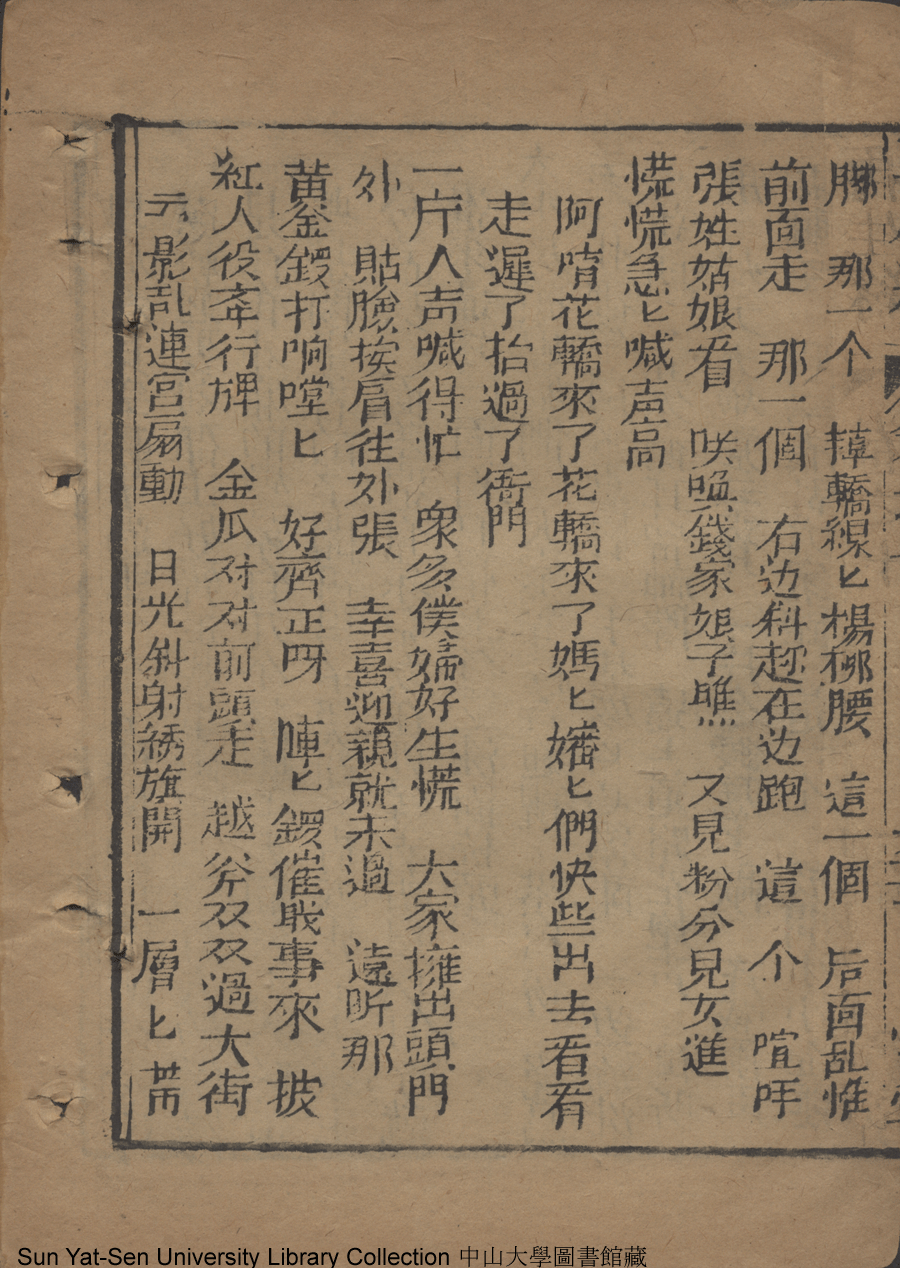 脚　那一个　掉轎線匕楊柳腰　這一個　后面乱惟
前面走　那一個　右边斜赵在边跑　這　个　喧呼
張姓姑娘看　咲喚錢家娘子瞧　又見粉分見女進
慌慌急匕喊声高
阿唷花轎來了花轎來了媽匕嬸匕們快些出去看看
走遲了抬過了衙門
一片人声喊得忙　衆多僕婦好生慌　大家擁出頭門
外　貼膽挨肩往外張　幸喜迎親就未過　遠听那
黄金鑼打响嘡匕　好齊正呀　陣匕鑼催戝事來　披
紅人役牽行牌　金瓜对对前頭走　越斧双双過大街
影乱連宫扇動　日光斜射綉旗開　一層匕
Sun Yat-Sen University Library Collection 中山大學圖書館藏